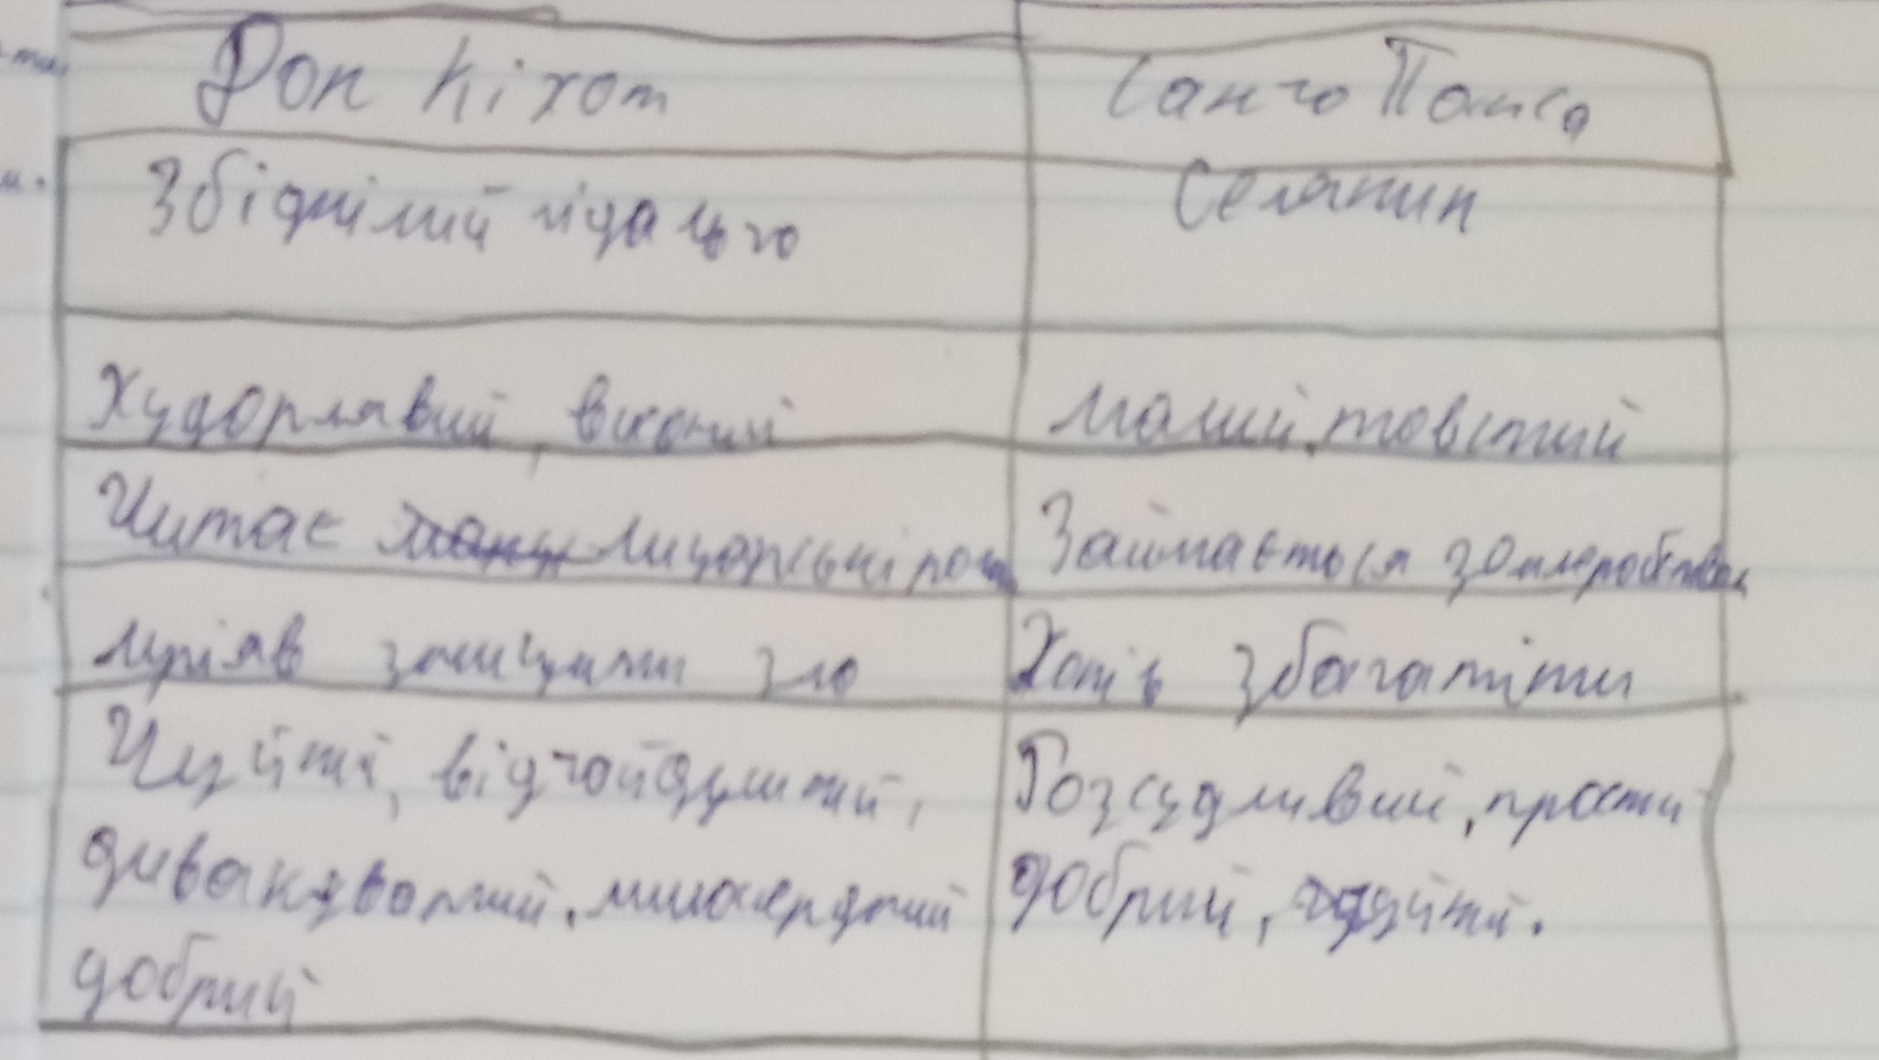 Дон Кіхот
Санчо Панса
Збіднілий гідальго
Селянин
Худорлявий, високий
малий, товстий
Читає лицарські ром
Займається землеробством
мріяв знищити зло
Хотів збагатіти
Чуйний, відчайдушний,
дивакуватий, милосердний
добрий
Розсудливий, прости
добрий, чуйний.